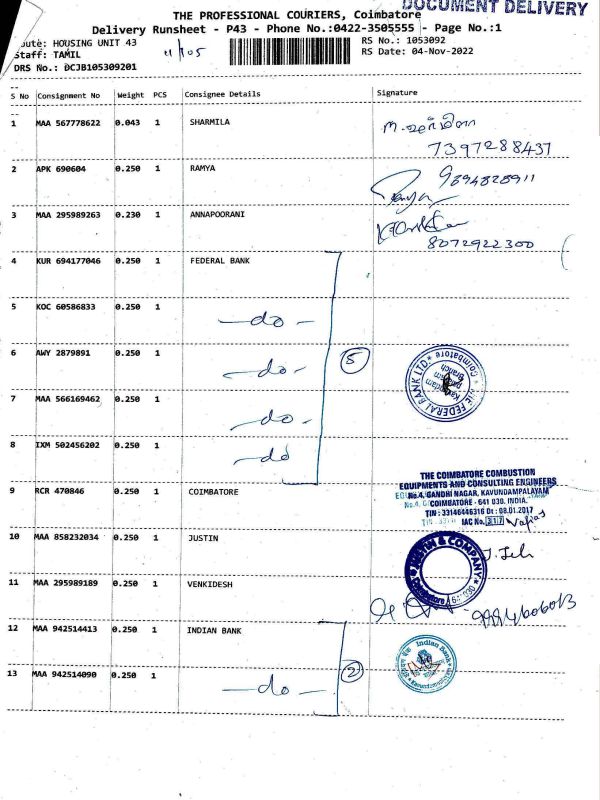 DOCUMENT DELIVERY
THE PROFESSIONAL COURIERS, Coimbatore
Delivery Runsheet - P43 - Phone No.:0422-3505555 - Page No.:1
Route: HOUSING UNIT 43
RS No.: 1053092
Staff: TAMIL
RS Date: 04-Nov-2022
DRS No.: DCJB105309201
S No Consignment No Weight PCS Consignee Details Signature
1 MAA 567778622 0.043 1 SHARMILA
7397288437
2 APK 690604 0.250 1 RAMYA
Ramya
3 MAA 295989263 0.230 1 ANNAPOORANI
8072922300
4 KUR 694177046 0.250 1 FEDERAL BANK
5 KOC 60586833 0.250 1 -do-
6 AWY 2879891 0.250 1 -do-
5
THE FEDERAL BANK LTD. Coimbatore
7 MAA 566169462 0.250 1 -do-
8 IXM 502456202 0.250 1 -do
THE COIMBATORE COMBUSTION
EQUIPMENTS AND CONSULTING ENGINEERS
9 RCR 470846 0.250 1 COIMBATORE
No.4, GANDHI NAGAR, KAVUNDAMPALAYAM
COIMBATORE - 641 030. INDIA.
TIN : 33146446316 Dt : 08.01.2017
IAC No. 317
10 MAA 858232034 0.250 1 JUSTIN
JUSTIN & COMPANY
11 MAA 295989189 0.250 1 VENKIDESH
12 MAA 942514413 0.250 1 INDIAN BANK
Indian Bank
13 MAA 942514090 0.250 1 -do-
2